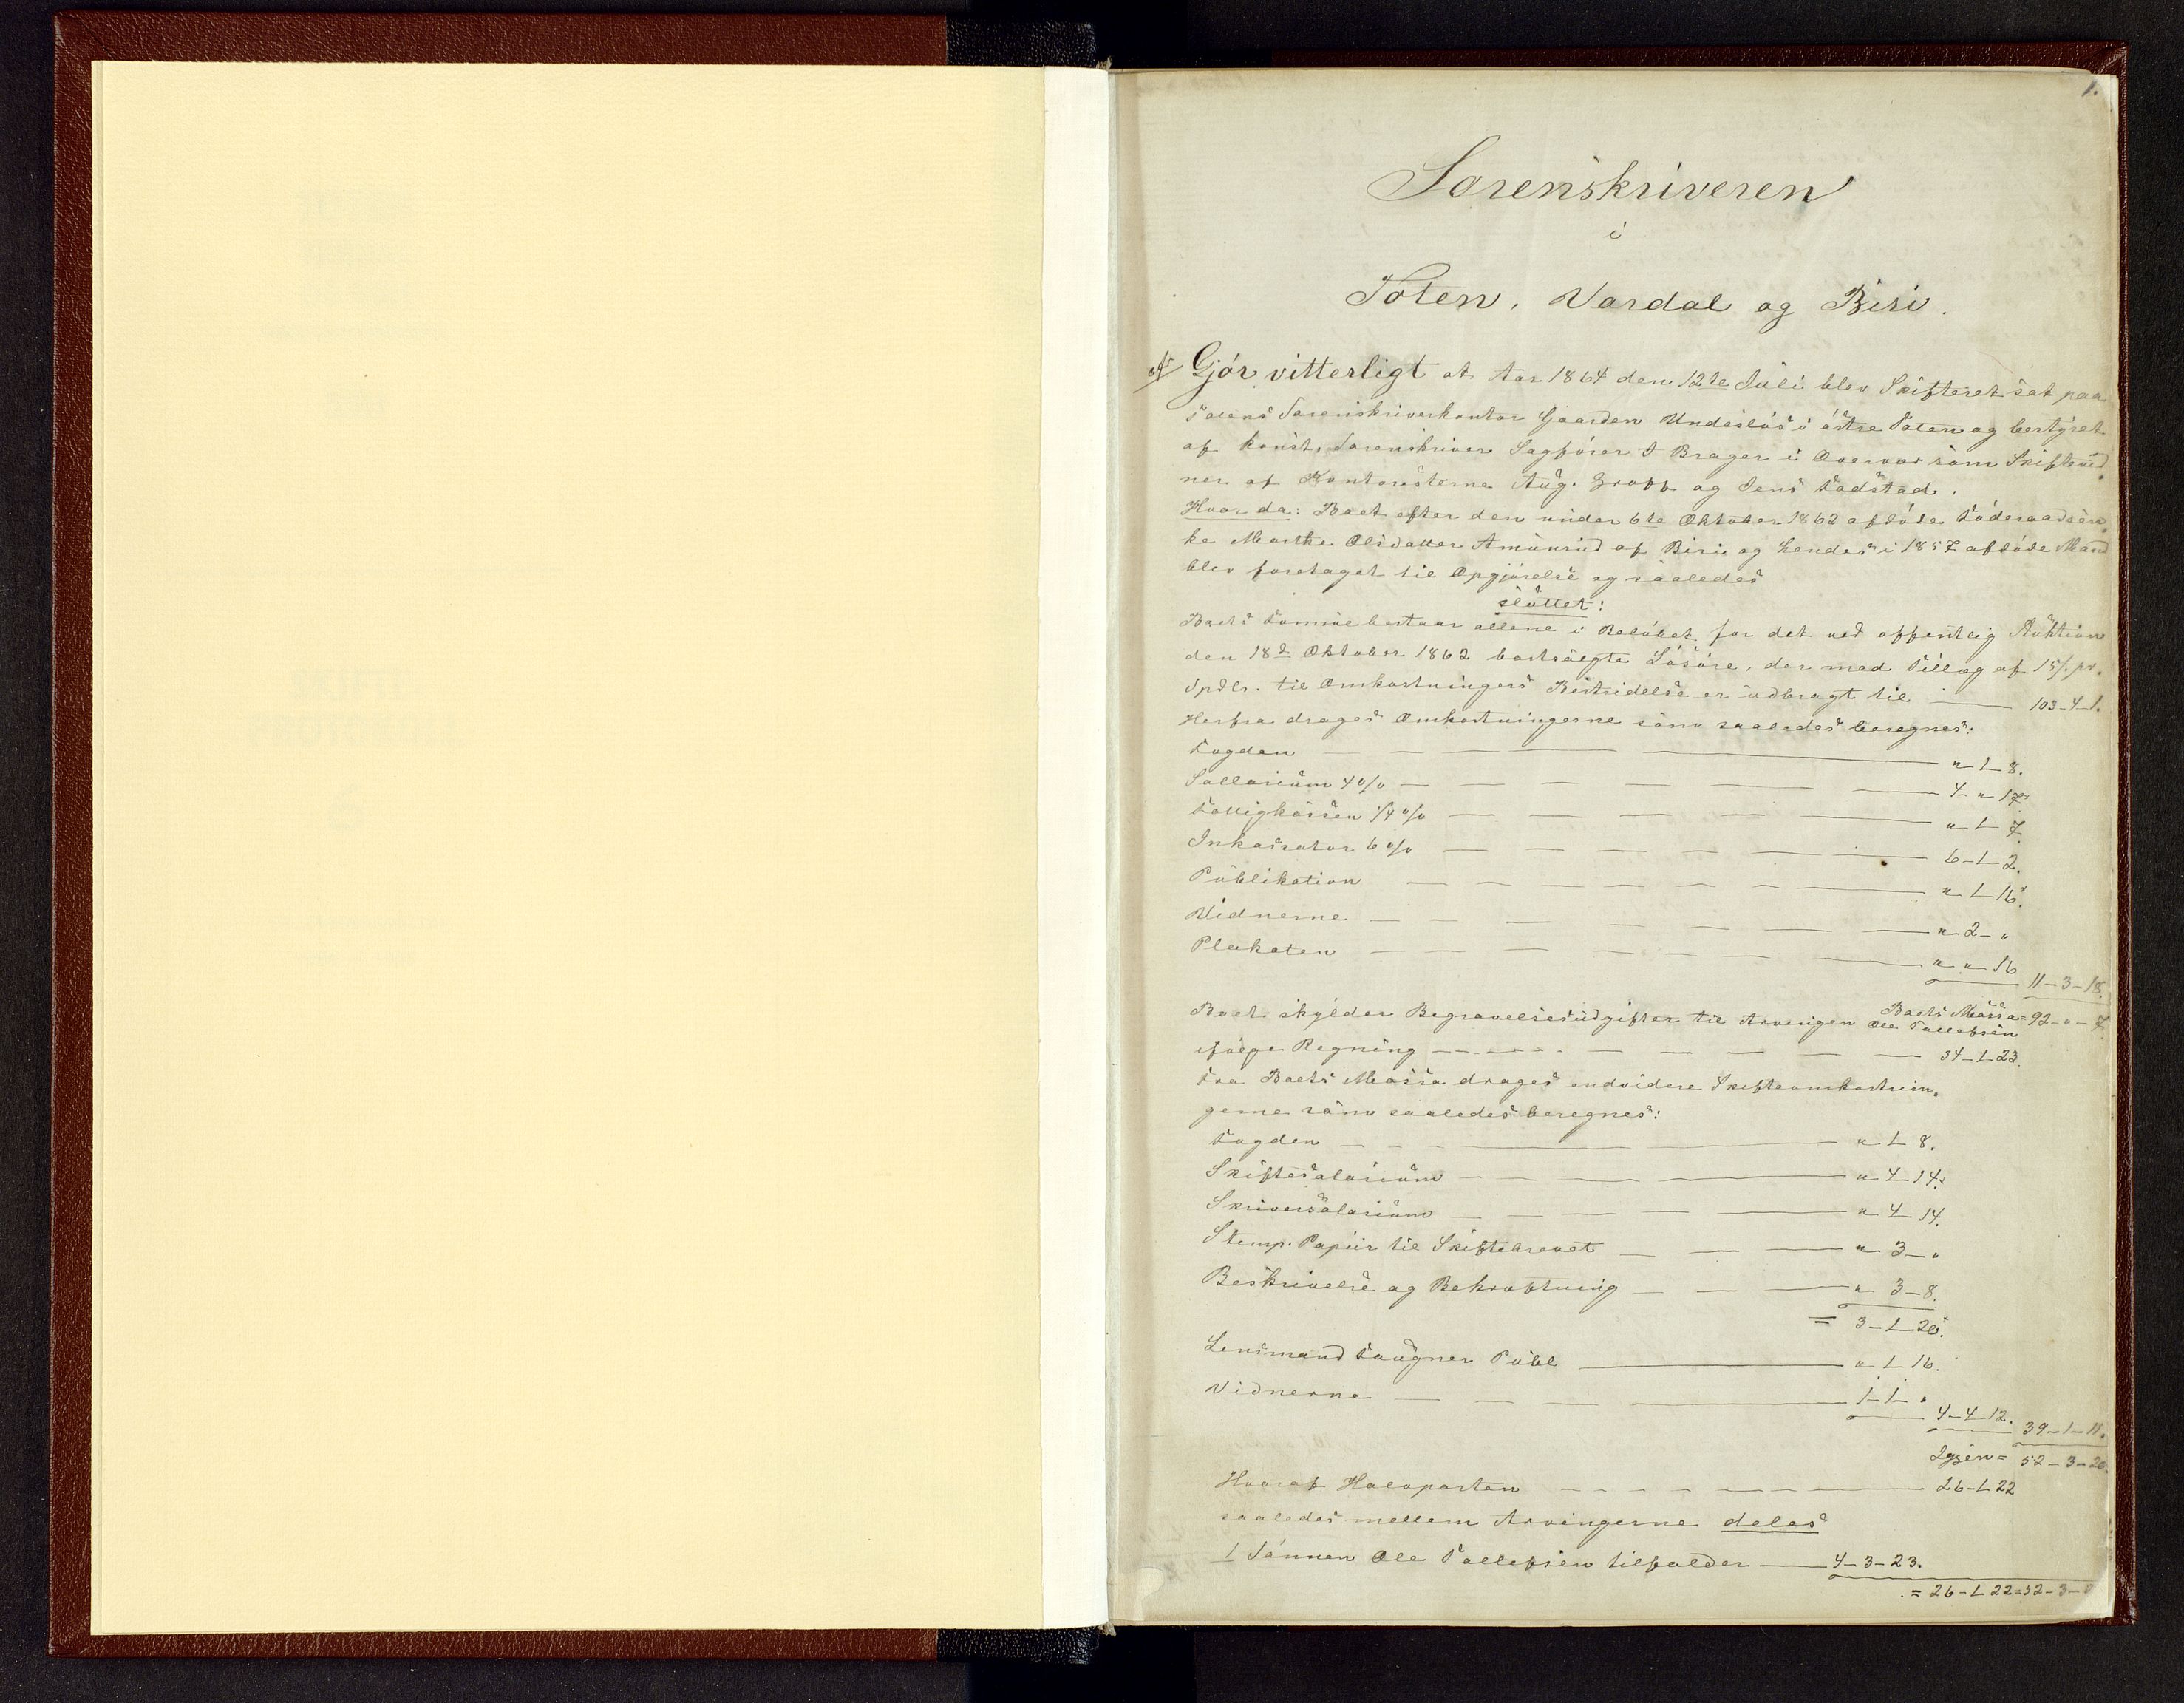 1.
Sorenskriveren
i
Toten, Vardal og Biri.
Gjör vitterligt at Aar 1864 den 12te Juli blev Skifteret sat paa
Totens Sorenskriverkontor Gaarden Undeslös i östre Toten og bestyret
af konst. Sorenskriver Sagförer Brager i Overvær som Skiftevid
ner af Kontoristerne Aug. Gropp og Jens Fadstad.
Hvor da: Boet efter den under 6te Oktober 1862 afdöde Föderaadsen
ke Marthe Olsdatter Amünrud af Biri og hendes i 1857 afdöde Mand
blev foretaget til Opgjörelse og saaledes
sluttet:
Boets Formue bestaar allene i Belöbet for det ved offentlig Auktion
den 18de Oktober 1862 bortsolgte Lösöre, der med Tillæg af 15/. pr.
Spdlr. til Omkostningers Bestridelse er udbragt til — 103-4-1.
Herfra drages Omkostningerne som saaledes beregnes:
Fogden — " 1 8.
Sallarium 4 o/o — 4 " 17
Fattigkassen 1/4 o/o — " 1 7.
Inkassator 6 o/o — 6-1-2.
Publikation — " 1-16.
Vidnerne — " 2 - "
Plakaten — " " 16
11-3-18.
Boets Massa = 92-"-7.
Boet skylder Begravelsesudgifter til Arvingen Ole Tollefsen
ifölge Regning — 34-1-23.
Fra Boets Massa drages endvidere Skifteomkostnin,
gerne som saaledes beregnes:
Fogden — " 1 8.
Skiftesalarium — " 4 14.
Skriversalarium — " 4 14.
Stemp. Papiir til Skiftebrevet — " 3 - "
Beskrivelse og Bekræftning — " 3-8.
= 3-1-20.
Lensmand Faugner Publ — " 1 16.
Vidnerne — 1-1-"
4-4-12. 39-1-11.
Igjen = 52-3-20.
Hvoraf Halvparten — 26-1-22
saaledes mellem Arvingerne deles
1 Sönnen Ole Tollefsen tilfalder — 4-3-23.
= 26-1-22 = 52-3-